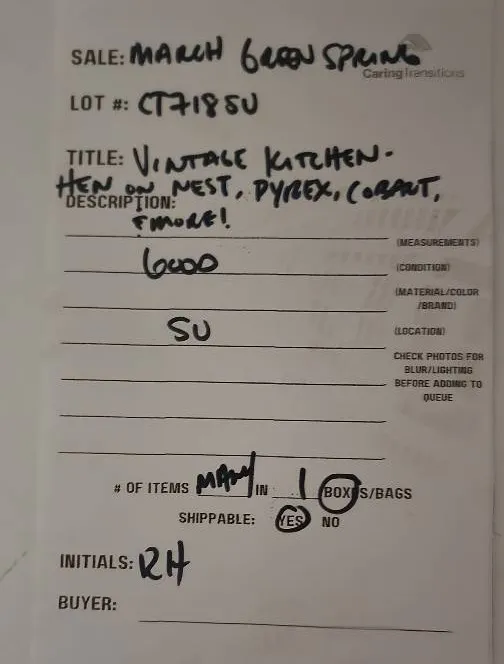 SALE: MARCH GREEN SPRING
Caring Transitions
LOT #: CT7185U
TITLE: VINTAGE KITCHEN-
HEN ON NEST, PYREX, COBALT,
DESCRIPTION:
& MORE!
(MEASUREMENTS)
GOOD (CONDITION)
(MATERIAL/COLOR
/BRAND)
SU (LOCATION)
CHECK PHOTOS FOR
BLUR/LIGHTING
BEFORE ADDING TO
QUEUE
# OF ITEMS MANY IN 1 BOXES/BAGS
SHIPPABLE: YES NO
INITIALS: RH
BUYER: